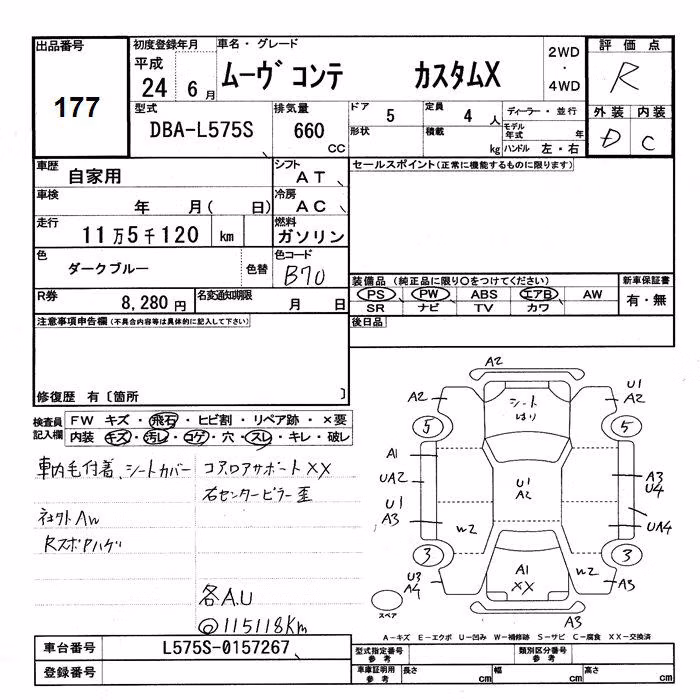 出品番号
177
初度登録年月
平成
24年 6月
車名・グレード
ムーヴ コンテ カスタムX
2WD
・
4WD
評価点
R
外装 内装
D C
型式
DBA-L575S
排気量
660
CC
ドア 5
定員 4 人
ディーラー・並行
形状
積載 kg
モデル年式 年
ハンドル 左・右
車歴
自家用
シフト
AT
セールスポイント(正常に機能するものに限ります)
車検
年 月( 日)
冷房
AC
走行
11万5千120 km
燃料
ガソリン
色
ダークブルー
色替
色コード
B70
装備品 (純正品に限り○をつけてください)
新車保証書
PS PW ABS エアB AW
有・無
SR ナビ TV カワ
R券
8,280円
名変通知期限
月 日
後日品
注意事項申告欄(不具合内容等は具体的に記入して下さい)
修復歴 有〔箇所 〕
検査員記入欄
FW キズ・飛石・ヒビ割・リペア跡・×要
内装 キズ・汚レ・コゲ・穴・スレ・キレ・破レ
車内毛付着、シートカバー
コアロアサポートXX
右センターピラー歪
社外AW
Rスポアハゲ
各A.U
◎115118Km
A2
A2
U1
A2
シート
はり
5
5
A1
UA2
U1
A3
U1
A2
A3
U4
UA4
W2
3
3
U3
A4
A1
XX
W2
A3
A3
スペア
A−キズ E−エクボ U−凹み W−補修跡 S−サビ C−腐食 XX−交換済
車台番号
L575S-0157267
登録番号
型式指定番号
参考
類別区分番号
参考
車庫証明用
参考
長さ cm
幅 cm
高さ cm